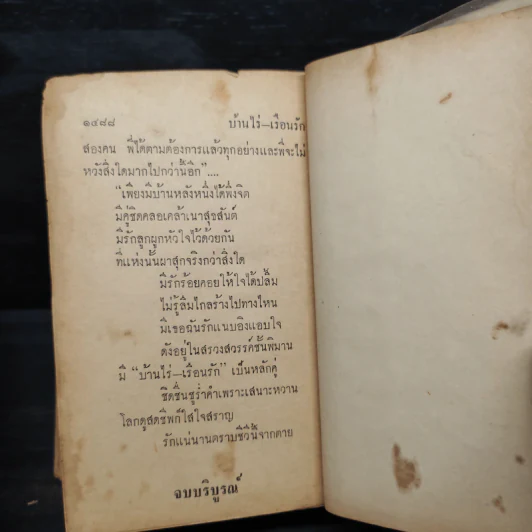 ๑๔๙๘ บ้านไร่—เรือนรัก
สองคน พี่ได้ตามต้องการแล้วทุกอย่างและพี่จะไม่
หวังสิ่งใดมากไปกว่านี้อีก”....
“เพียงมีบ้านหลังหนึ่งได้พึ่งจิต
มีคู่ชิดคลอเคล้าเนาสุขสันต์
มีรักลูกผูกหัวใจไว้ด้วยกัน
ที่แห่งนั้นผาสุกจริงกว่าสิ่งใด
มีรักร้อยคอยให้ใจได้ปลื้ม
ไม่รู้ลืมไกลร้างไปทางไหน
มีเธอฉันรักแนบอิงแอบใจ
ดังอยู่ในสรวงสวรรค์ชั้นพิมาน
มี “บ้านไร่—เรือนรัก” เป็นหลักคู่
ชิดชื่นชูร่ำคำเพราะเสนาะหวาน
โลกดูสดชีพก็ใสใจสราญ
รักแน่นานตราบชีวินจากตาย
จบบริบูรณ์